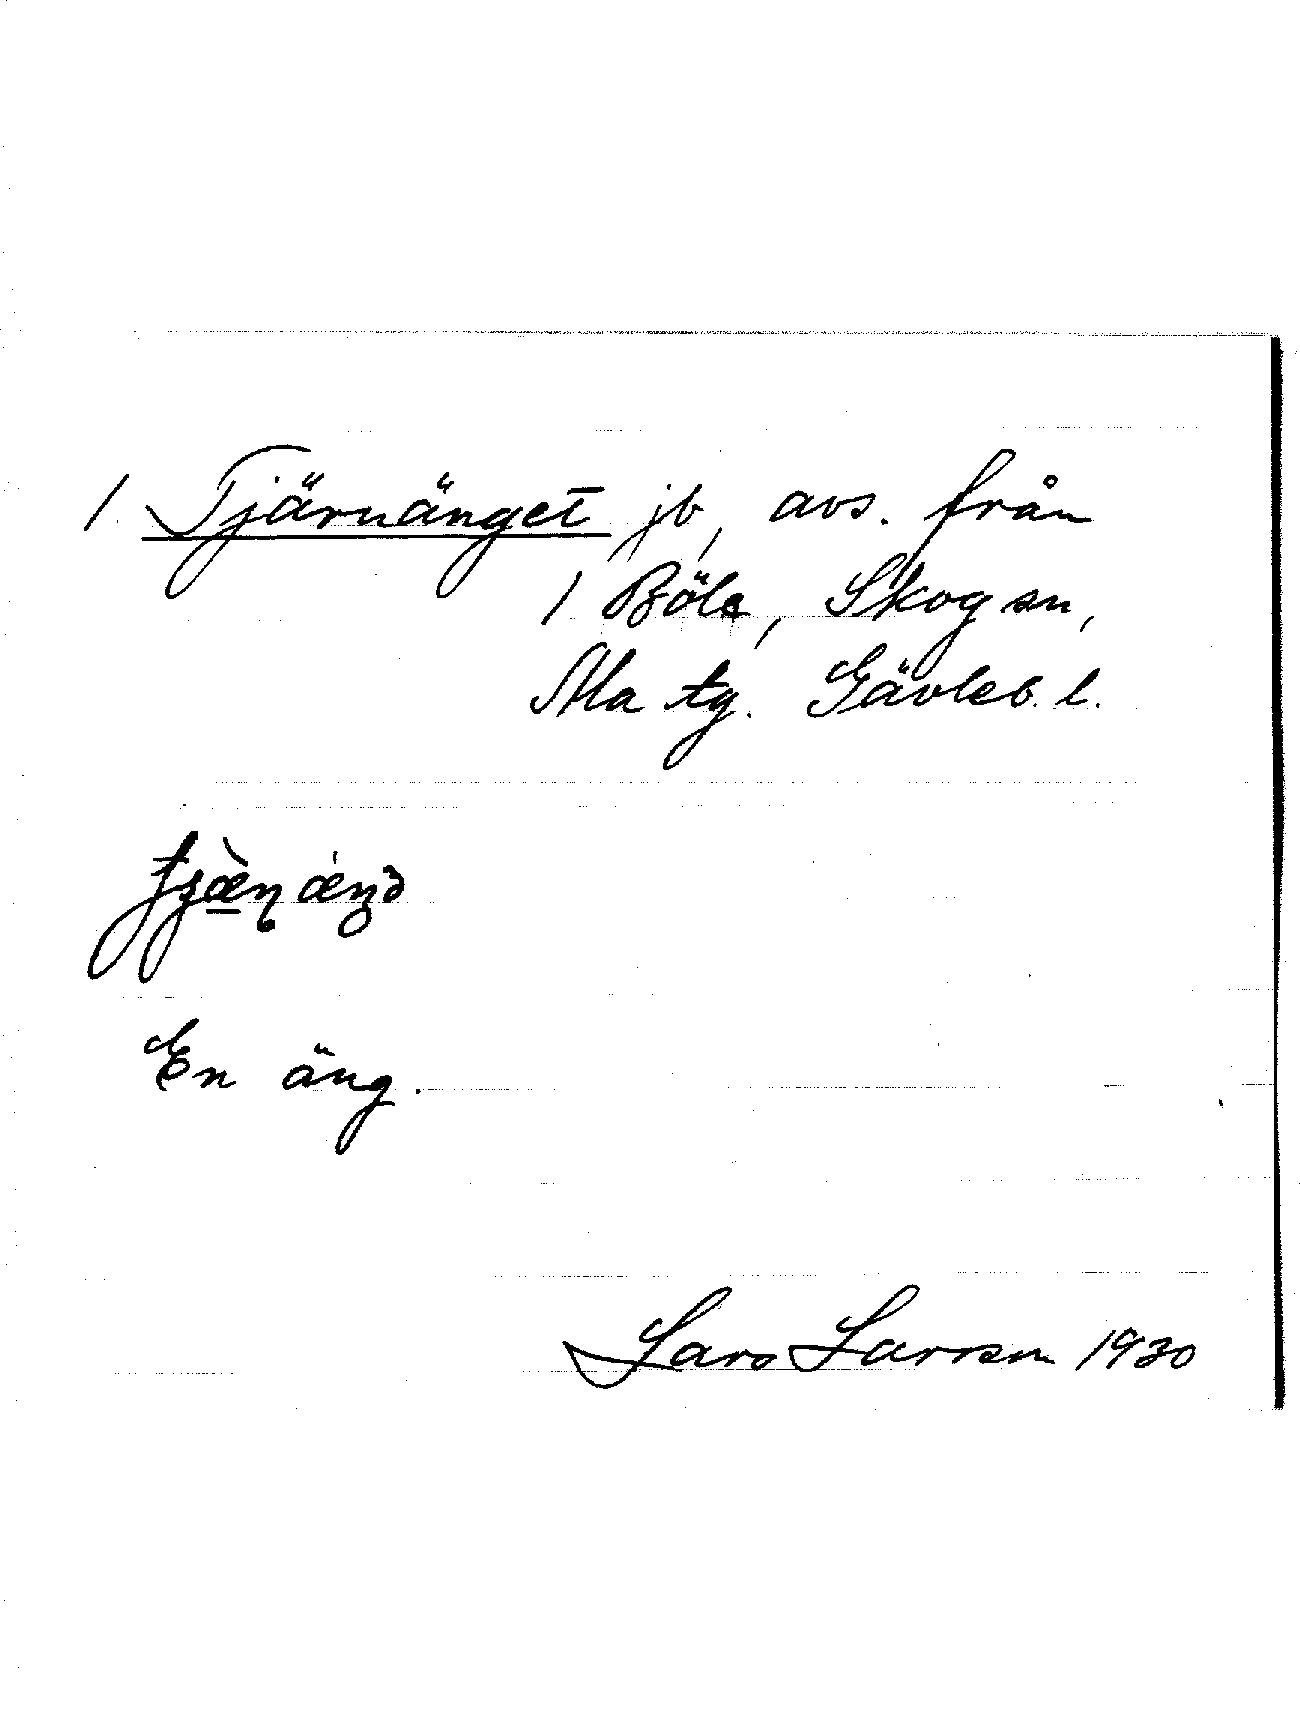 1. Tjärnänget jb, avs. från
1 Böle, Skog sn,
Ala tg. Gävleb. l.
En äng.
Lars Larsson 1930